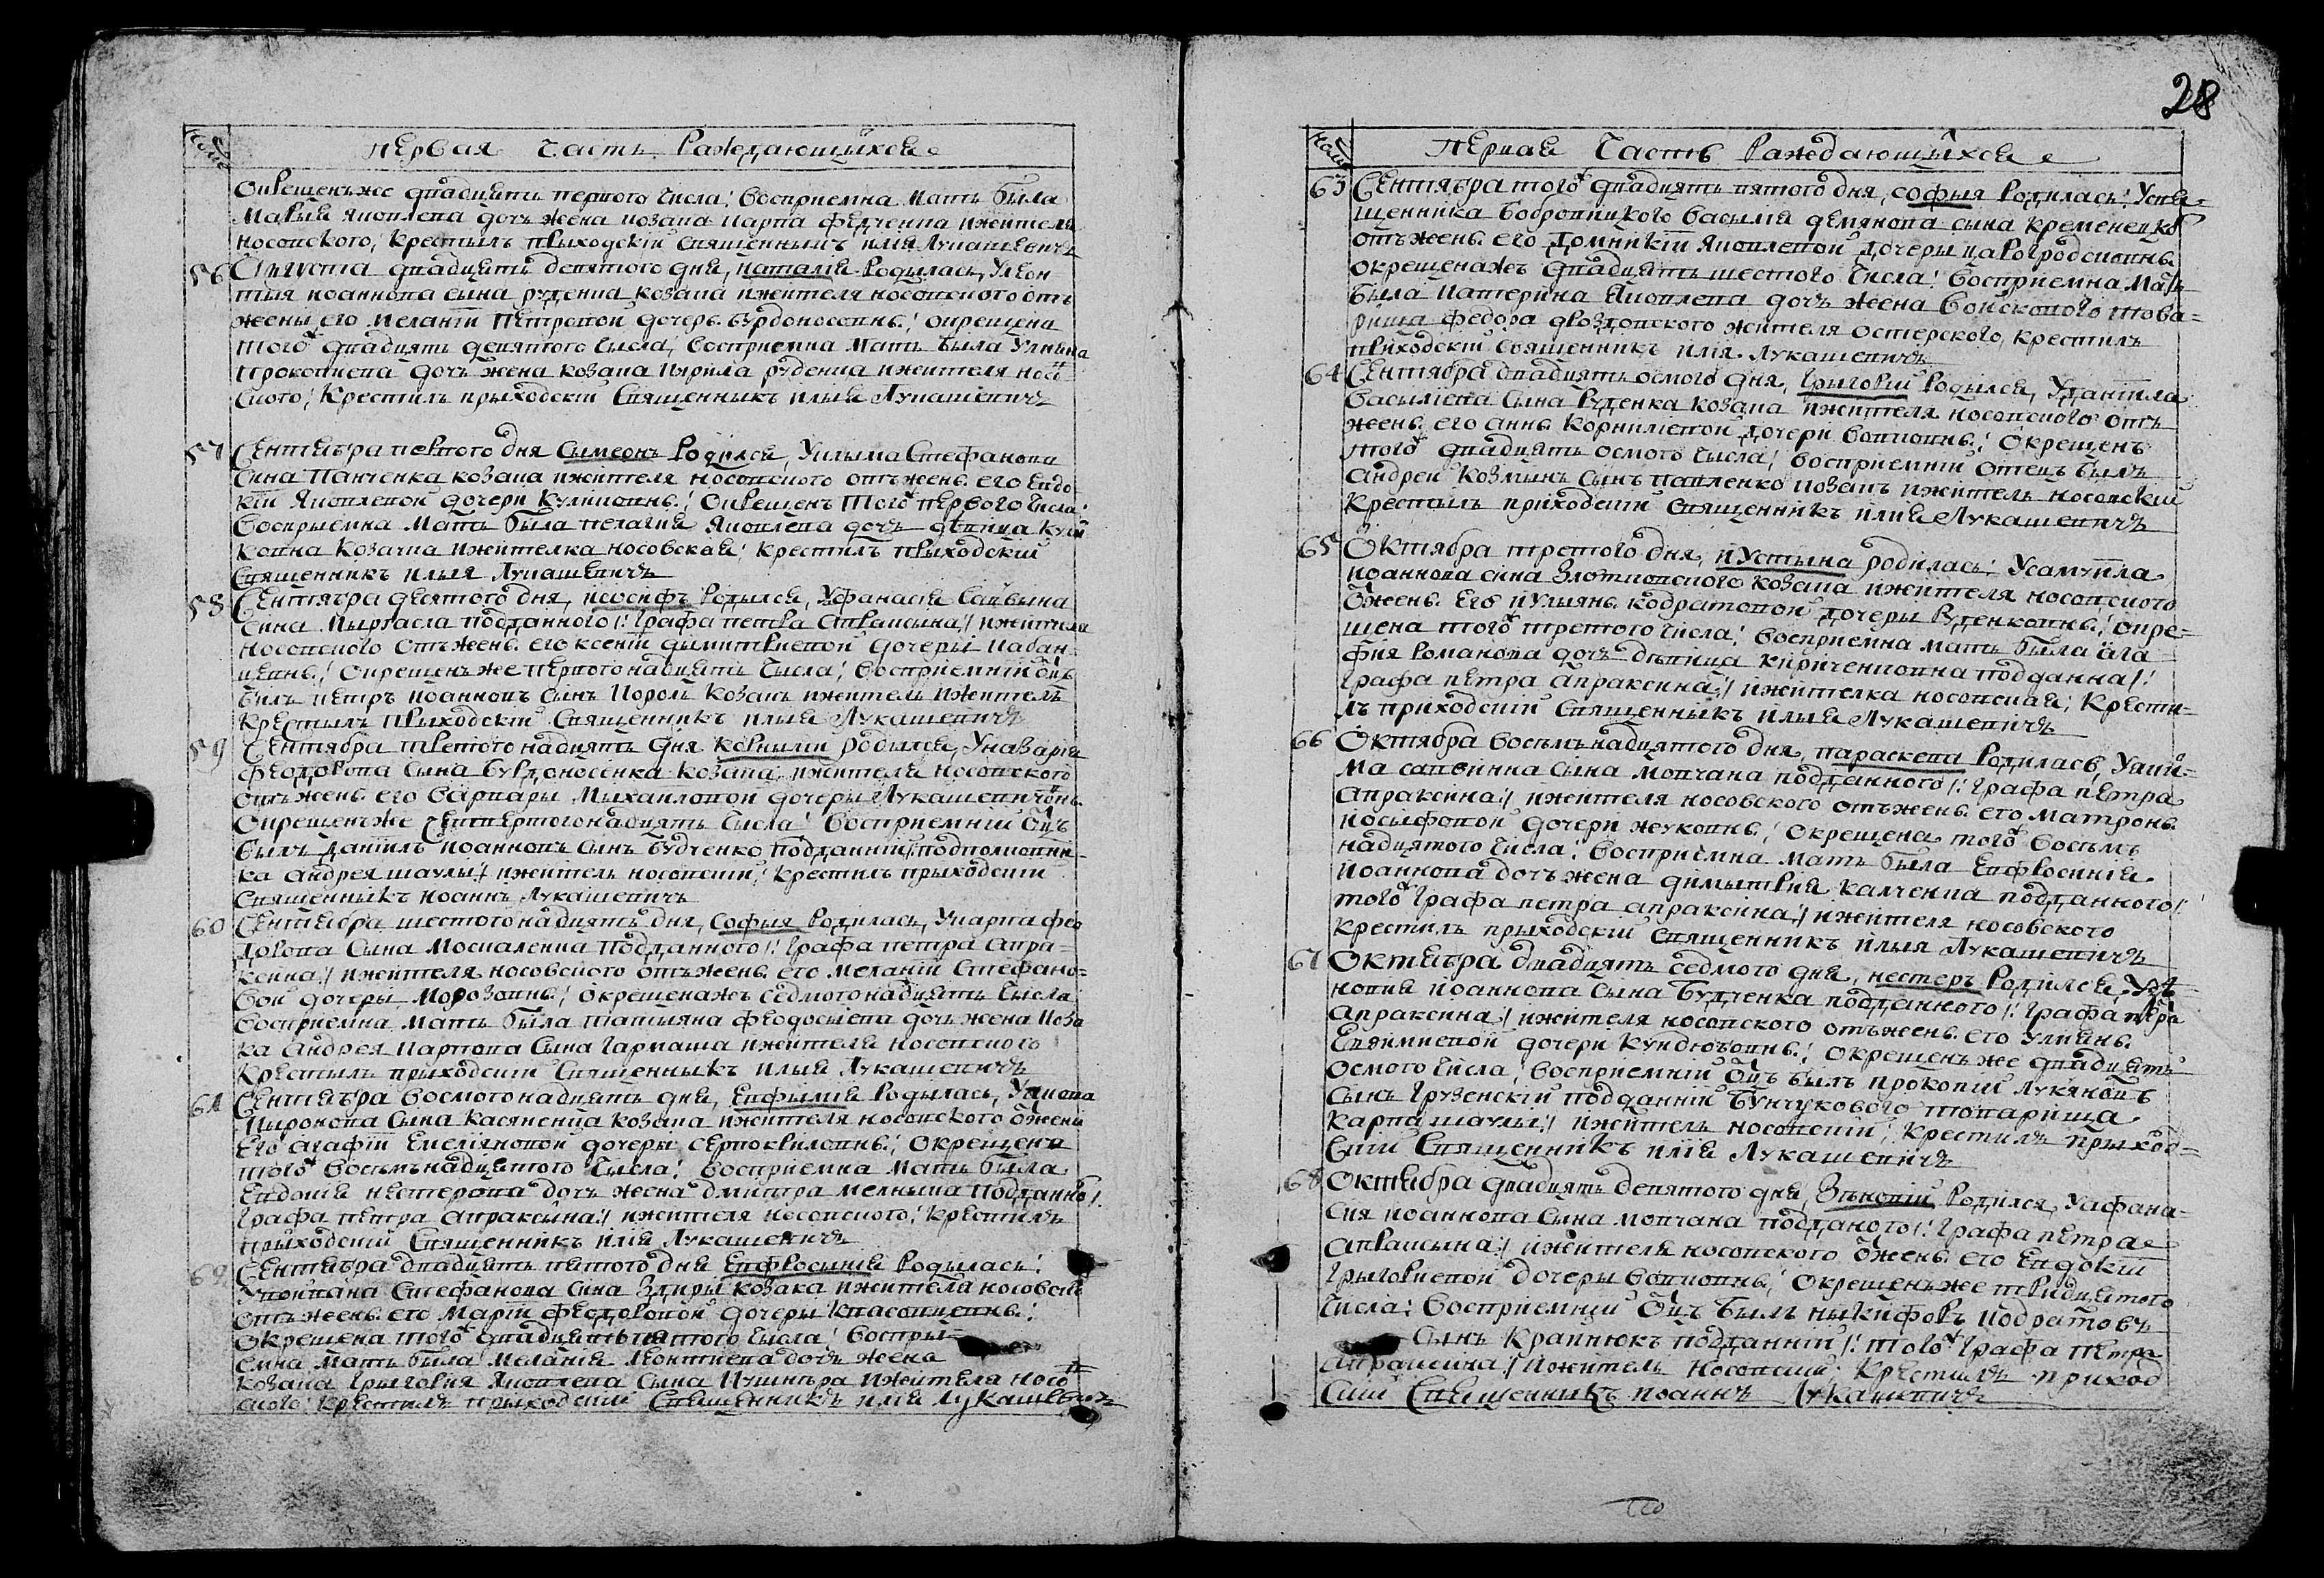 28
Первая Часть Раждающихся
Окрещенъже двадцять первого Числа: восприемна Мать была
Мария Яковлева дочь жена козака Карпа Федченка ижителя
Носовского, Крестилъ приходский священникъ илия Лукашевичъ
56 Августа двадцять девятого дня, наталия Родилась, Улеон
тия иоаннова сына руденка козака ижителя носовского отъ
жены его Мелании Петровой дочеръ Бурдоносовнѣ: окрещена
того двадцять девятого числа, восприемна Мать была Улиана
Прокопиева дочъ жена козака Кирила руденка ижителя носов
ского, Крестилъ приходский Священникъ илия Лукашевичъ
57 Сентября первого дня Симеонъ Родился, Уилима Стефанова
Сина Панченка козака ижителя носовского отъжены его Евдо
кии Яковлевой дочери Куликовнѣ: Окрещенъ того первого числа:
восприемна Мать была пелагия Яковлева дочъ дѣвица Кули
ковна Козачка ижителка носовская: крестилъ приходский
Священникъ илия Лукашевичъ
58 Сентября десятого дня, иосифъ Родился, Уафанасия Саввина
Сина подданного /: Графа петра Апраксина :/ ижителя
носовского отъжены его ксении димитриевой дочери
Окрещенъже первогонадцять числа: восприемний оцъ
билъ петръ иоанновъ Синъ Король козакъ ижитель ижитель
Крестилъ Приходский Священникъ илия Лукашевичъ
59 Сентября третогонадцять дня Корнилий родился, Уназария
Феодорова Сына Бурдоносенка козака ижителя носовского
отъжены его Варвары Михайловой дочеры Лукашевичовнѣ
Окрещенъже Четвертогонадцять Числа: восприемний оцъ
былъ даниилъ иоанновъ Синъ Будченко подданний /: подполковни
ка Андрея шаулы :/ ижитель носовский: Крестилъ приходский
Священникъ иоаннъ Лукашевичъ
60 Сентября шестогонадцять дня, София Родилась, Укарпа фео
дорова Сына Москаленка подданного /: Графа петра Апра-
ксина :/ ижителя носовского отъжены его мелании Стефано-
вой дочери Морозовнѣ: окрещенажъ седмогонадцять Числа
восприемна Мать была татияна феодосиева дочъ жена коза
ка Андрея Карпова Сына Гармаша ижителя носовского
Крестилъ приходский Священникъ илия Лукашевичъ
61 Сентября восмогонадцять дня, Евфимия Родылась, Уякова
Миронова Сына Касяненка козака ижителя носовского ожены
Его агафии Емелияновой дочеры Окрещена
того восемьнадцятого Числа: восприемна мать была
Евдокия нестерова дочъ жена дмитра мелника подданно /:
Графа петра Апраксина :/ ижителя носовского: Крестилъ
приходский Священникъ илия Лукашевичъ
62 Сентября двадцять пятого дня Евфросиния Родилась:
Стефанова Сина козака ижителя носовск
отъжены его Марии Феодоровой дочеры
Окрещена того двадцять пятого Числа: воспри
емна мать была Мелания Леонтиева дочъ жена
козака Григория Яковлева Сына Кушнѣра ижителя носов
ского: Крестилъ приходский Священникъ илия Лукашевичъ
Первая Часть Раждающихся
63 Сентября того двадцять пятого дня, софия Родилась: Усвя-
щенника бобровицкого василия демянова сына Кременецко
отъжены его Домникии Яковлевой дочеры
окрещенажъ двадцять шестого Числа: восприемна Мать
была Катерина Яковлева дочъ жена войскового това-
рища федора дроздовского жителя остерского, крестилъ
приходский Священникъ илия Лукашевичъ
64 Сентября двадцять осмого дня, Григорий Родился, Уданиила
Василиева Сына Руденка козака ижителя носовского отъ
жены его анны Корнилиевой дочери Вовковнѣ: Окрещенъ
того двадцять осмого Числа: восприемний отецъ былъ
Андрей Козминъ Синъ павленко козакъ ижитель носовский
Крестилъ приходский священникъ илия Лукашевичъ
65 Октября третого дня, иУстина родилась: Усамуила
иоаннова сина козака ижителя носовского
Ожены Его иУлиянѣ кодратовой дочеры Руденковнѣ: окре-
щена того третого Числа: восприемна мать была ага
фия Романова дочъ дѣвица кириченковна подданна /:
Графа петра апраксина :/ ижителка носовская: Крести-
лъ приходский Священникъ илия Лукашевичъ
66 Октября восемьнадцятого дня, параскева Родилась, Уаки-
ма саввина сина молчана подданного /: Графа петра
Апраксина :/ ижителя носовского отъжены его Матронѣ
иосифовой дочери жуковнѣ: Окрещена того восемъ
надцятого Числа: восприемна мать была Евфросиния
иоаннова дочъ жена димитрия калченка подданного /:
того Графа петра апраксина :/ ижителя носовского
крестилъ приходский Священникъ илия Лукашевичъ
67 Октября двадцять седмого дня, нестеръ Родился,
иоаннова Сына Будченка подданного /: Графа петра
апраксина :/ ижителя носовского отъжены его Улиянѣ
дочери Окрещенъже двадцять
осмого Числа: восприемний Оцъ былъ прокопий Лукяновъ
Синъ Грузенский подданний Бунчукового товарища
Карпа шаулы :/ ижитель носовский: Крестилъ приход-
ский Священникъ илия Лукашевичъ
68 Октября двадцять девятого дня, Зѣновий Родился, Уафана-
сия иоаннова Сына молчана подданого /: Графа петра
Апраксина :/ ижителя носовского ожены его Евдокии
Григориевой дочеры Вовковнѣ: Окрещенъже тридцятого
Числа: восприемний Оцъ былъ никифоръ Кодратовъ
Синъ Крапивнюкъ подданний /: того Графа петра
апраксина :/ ижитель носовский: Крестилъ приход
ский Священникъ иоаннъ Лукашевичъ